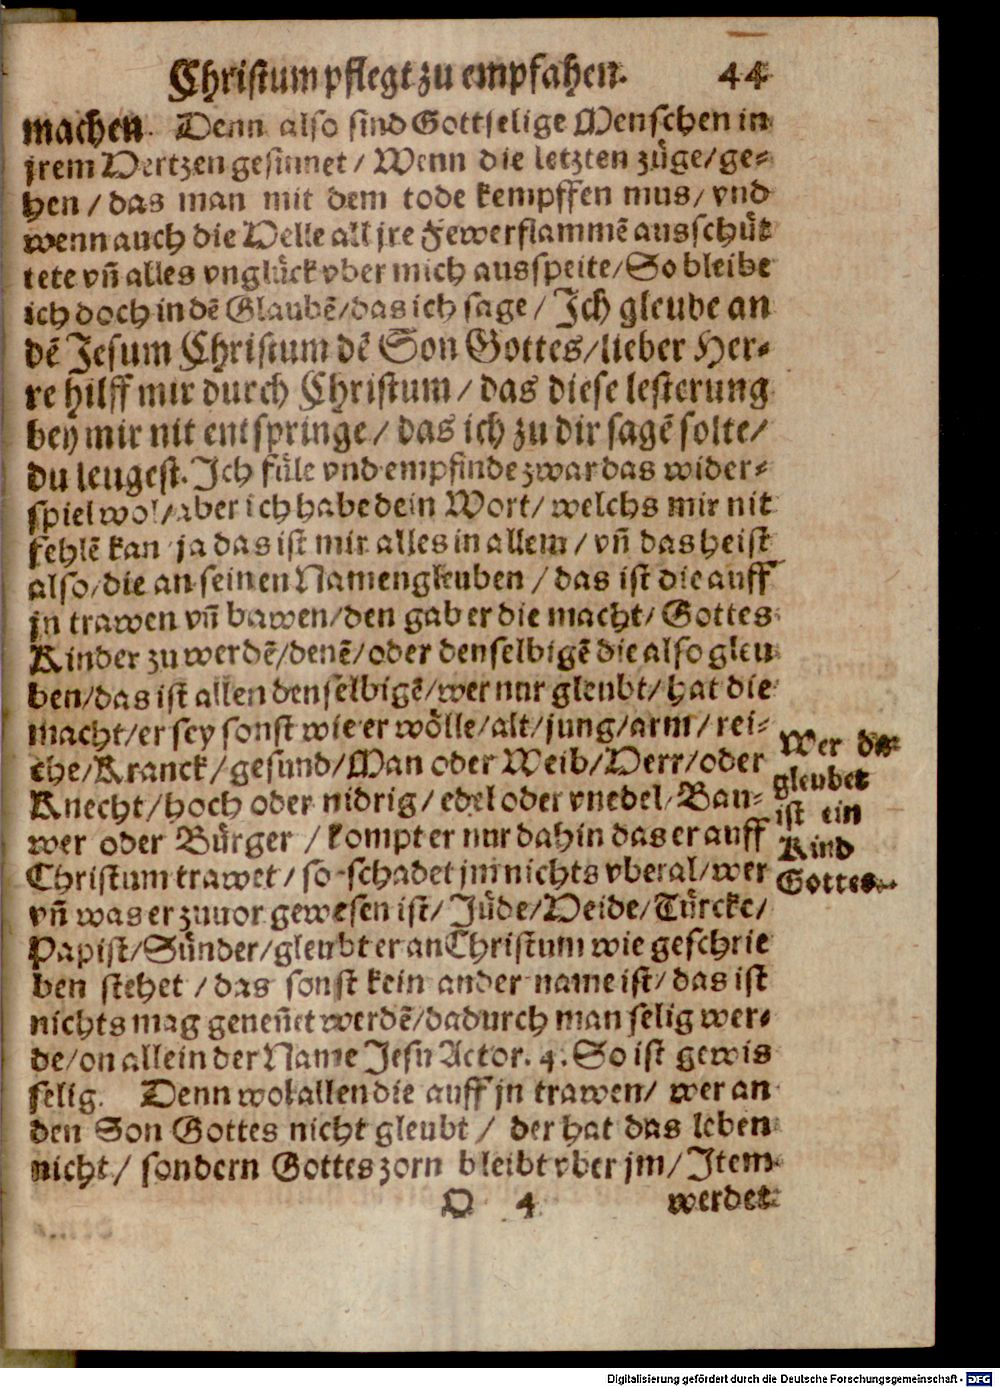 Christum pflegt zu empfahen. 44
machen. Denn also sind Gottselige Menschen in
jrem Hertzen gesinnet / Wenn die letzten züge/ge-
hen / das man mit dem tode kempffen mus/ vnd
wenn auch die Helle all jre Fewerflammẽ ausschüt
tete vñ alles vnglück vber mich ausspeite/So bleibe
ich doch in dẽ Glaubẽ/das ich sage / Ich gleube an
dẽ Jesum Christum dẽ Son Gottes/lieber Her-
re hilff mir durch Christum / das diese lesterung
bey mir nit entspringe / das ich zu dir sagẽ solte/
du leugest. Ich füle vnd empfinde zwar das wider-
spiel wol/aber ich habe dein Wort/ welchs mir nit
fehlẽ kan ja das ist mir alles in allem / vñ das heist
also/die an seinen Namen gleuben / das ist die auff
jn trawen vñ bawen/den gab er die macht/ Gottes
Kinder zu werdẽ/denẽ/oder denselbigẽ die also gleu
ben/das ist allen denselbigẽ/wer nur gleubt/ hat die
macht/er sey sonst wie er wölle/alt/jung/arm/ rei-
che/Kranck/gesund/Man oder Weib/Herr/oder
Knecht/hoch oder nidrig/ edel oder vnedel/Bau-
wer oder Bürger / kompt er nur dahin das er auff
Christum trawet/ so schadet jm nichts vberal/wer
vñ was er zuuor gewesen ist/ Jüde/Heide/Türcke/
Papist/Sünder/gleubt er an Christum wie geschrie
ben stehet / das sonst kein ander name ist/ das ist
nichts mag geneñet werdẽ/dadurch man selig wer-
de/on allein der Name Jesu Actor. 4. So ist gewis
selig. Denn wol allen die auff jn trawen/ wer an
den Son Gottes nicht gleubt / der hat das leben
nicht/ sondern Gottes zorn bleibt vber jm/ Item
Wer da
gleubet
ist ein
Kind
Gottes.
Q 4 werdet
Digitalisierung gefördert durch die Deutsche Forschungsgemeinschaft - DFG